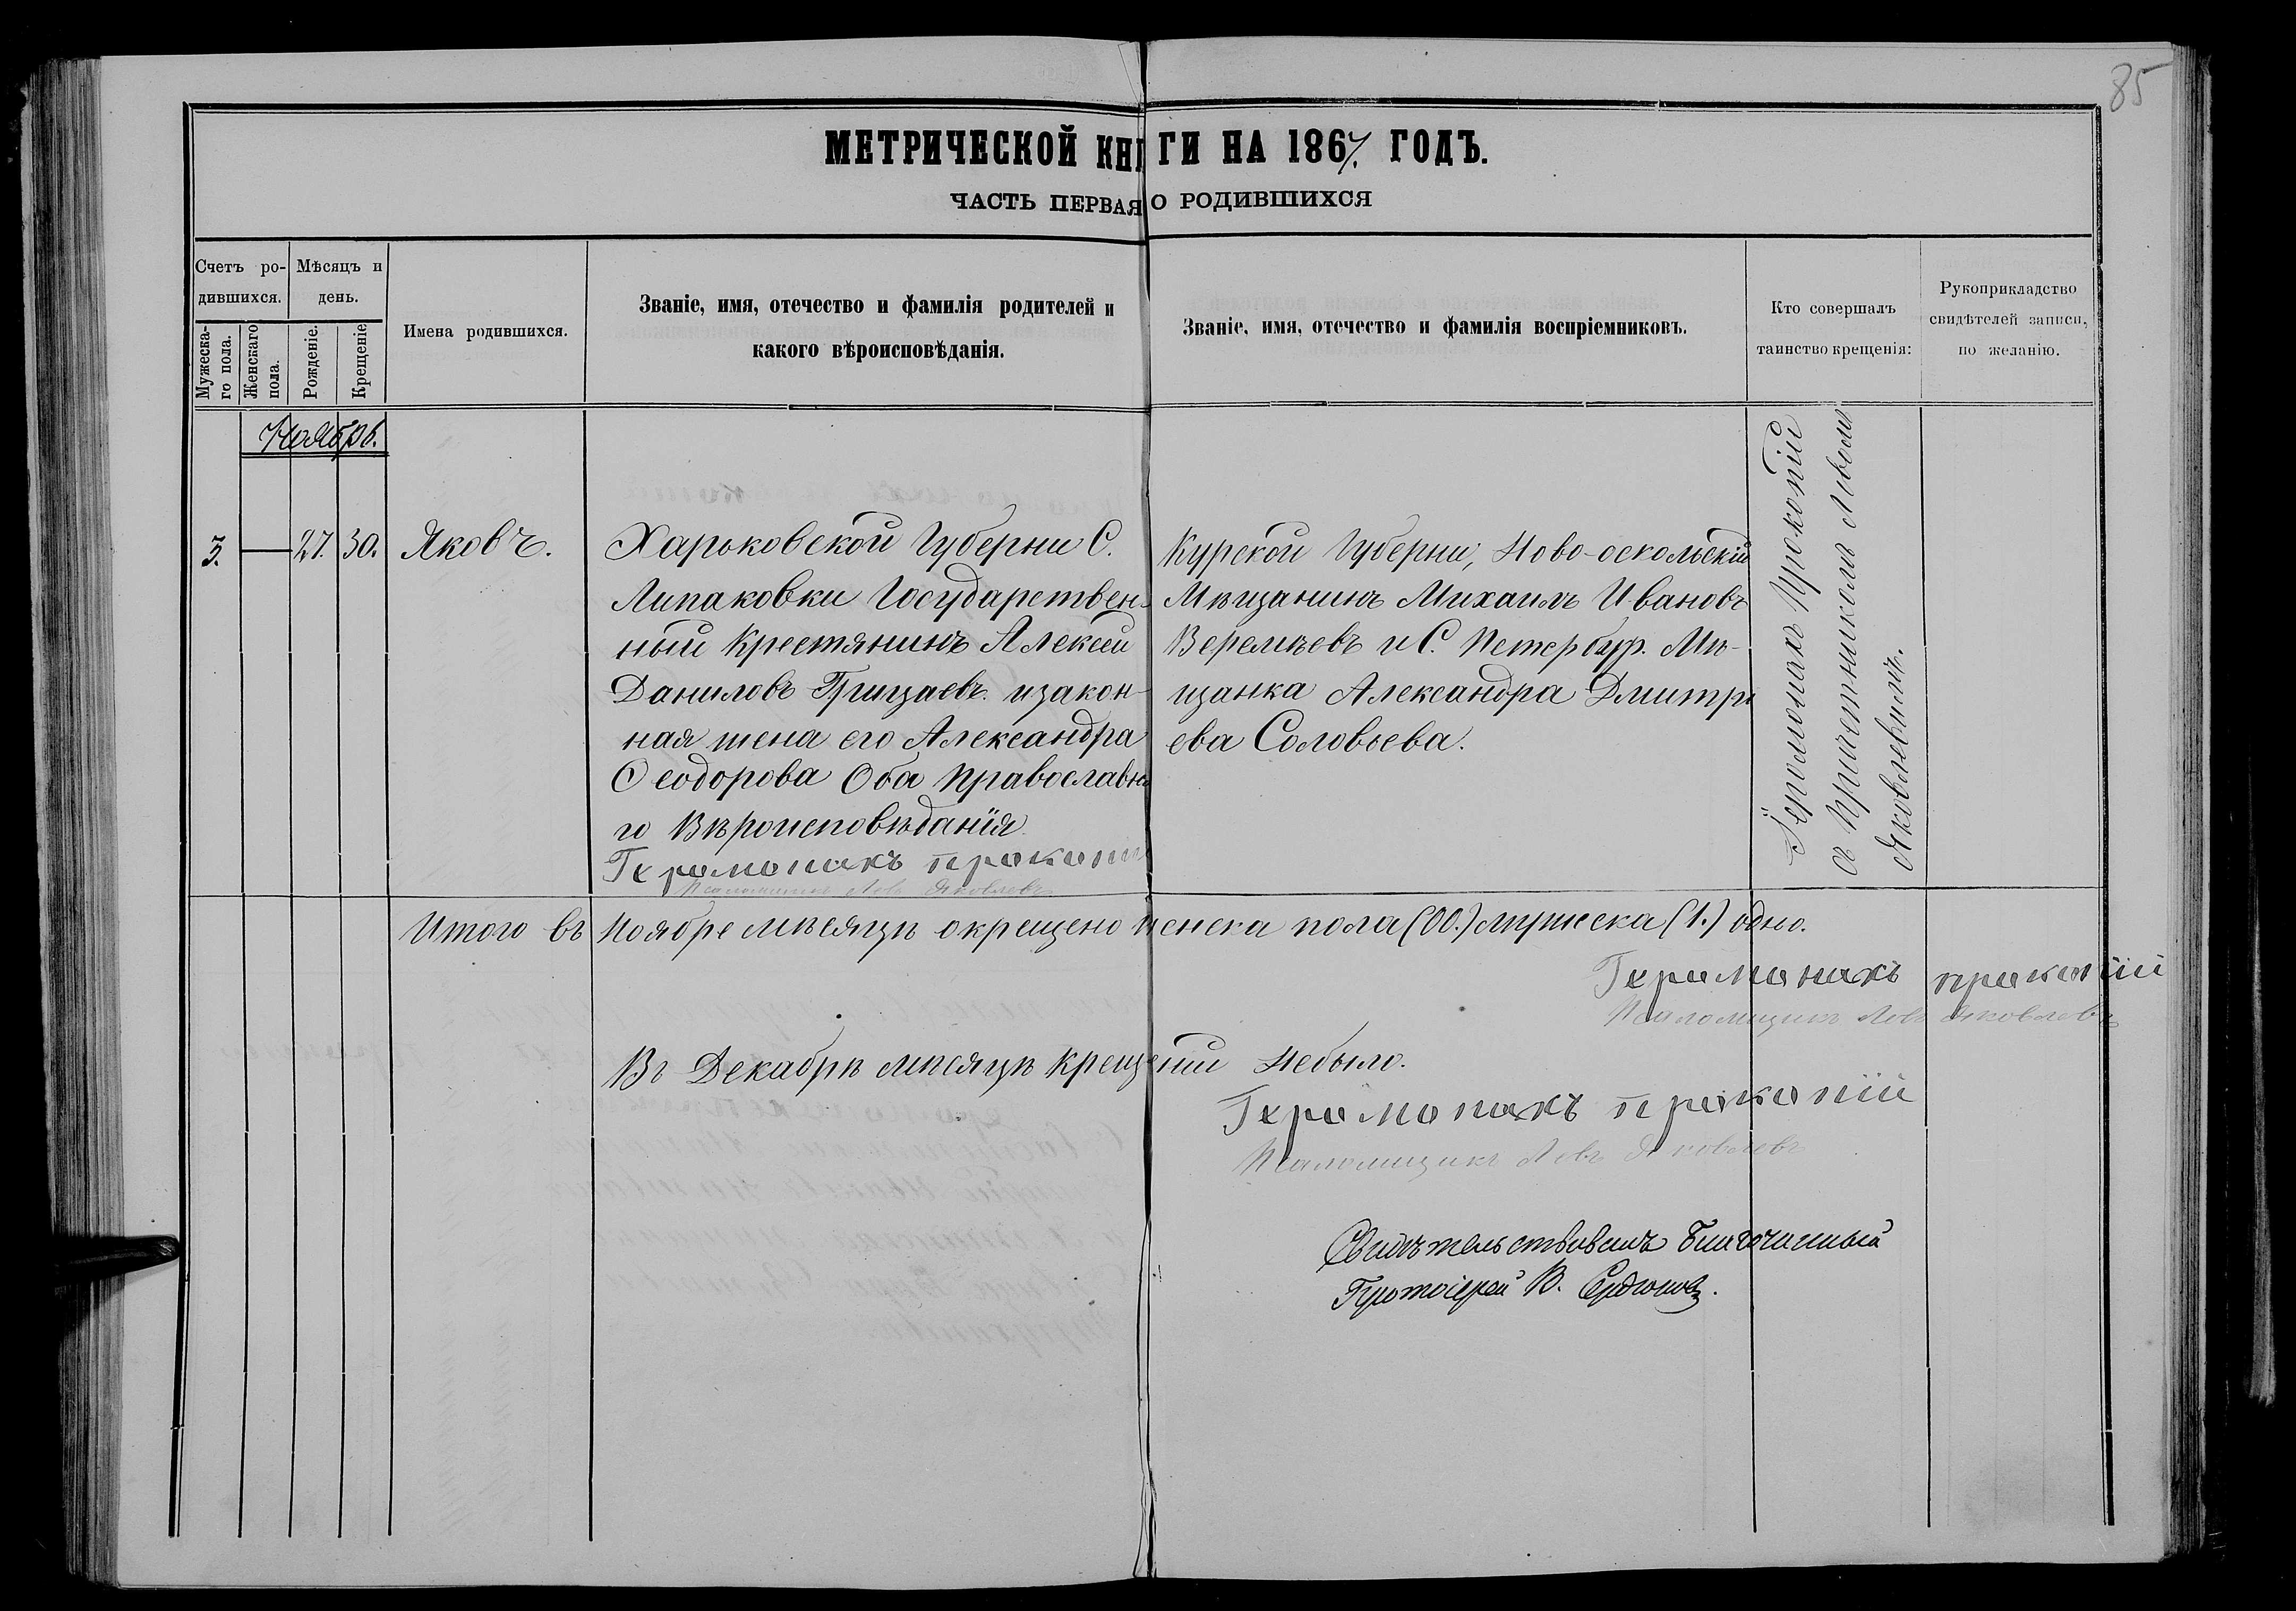 85
МЕТРИЧЕСКОЙ КНИГИ НА 1867. ГОДЪ.
ЧАСТЬ ПЕРВАЯ О РОДИВШИХСЯ
Счетъ ро-
дившихся.
Мужеска-
го пола.
Женскаго
пола.
Мѣсяцъ и
день.
Рожденіе.
Крещеніе
Имена родившихся.
Званіе, имя, отечество и фамилія родителей и
какого вѣроисповѣданія.
Званіе, имя, отечество и фамилія воспріемниковъ.
Кто совершалъ
таинство крещенія:
Рукоприкладство
свидѣтелей записи,
по желанію.
Ноябрь.
3. — 27. 30. Яковъ.
Харьковской Губерни С.
Липаковки Государствен-
ный Крестянинъ Алексей
Даниловъ Грицаевъ изакон-
ная жена его Александра
Ѳеодорова Оба Православна
го Вѣроисповѣданія
Іеромонахъ прокопій
Псаломщикъ Левъ Яковлевъ
Курской Губерни, Ново-оскольскій
Мѣщанинъ Михаилъ Ивановъ
Веремѣевъ и С. Петербур. Мѣ-
щанка Александра Дмитрі
ева Соловьева.
Іеромонахъ Прокопій
съ Причетникомъ Львомъ
Яковлевымъ.
Итого въ Ноябре мѣсяцѣ окрещено женска пола (00.) мужеска (1.) одно.
Іеромонахъ прокопій
Псаломщикъ Левъ Яковлевъ
Въ Декабрѣ мѣсяцѣ крещеній небыло.
Іеромонахъ прокопій
Псаломщикъ Левъ Яковлевъ
Свидѣтельствовалъ Благочинный
Протоіерей В. Сердюковъ.